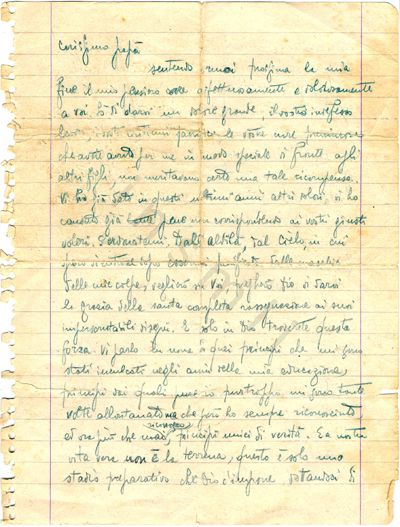 Carissimo papà
sentendo, ormai prossima la mia
fine il mio pensiero corre affettuosamente e dolorosamente
a voi. So di darvi un dolore grande, il vostro indefesso
lavoro, i vostri sacrifici, le vostre cure premurose
che avete avuto per me in modo speciale di fronte agli
altri figli, non meritavano certo una tale ricompensa.
Vi ho già dato in questi ultimi anni altri dolori, vi ho
causato già pene non corrispondendo ai vostri giusti
voleri. Perdonatemi. Dall'aldilà, dal Cielo, in cui
spero di entrare dopo essermi purificato dalla macchia
delle mie colpe, veglierò su Voi, pregherò Dio di darvi
la grazia della santa completa rassegnazione ai suoi
imperscrutabili disegni. E solo in Dio troverete questa
forza. Vi parlo in nome di quei principi che mi furono
stati inculcati negli anni della mia educazione,
principi dai quali, purtroppo mi sono tante
volte allontanato ma che però ho sempre riconosciuto
ed ora più che mai, riconosco principi unici di verità. La nostra
vita vera non è la terrena, questo è solo uno
stadio preparativo che Dio c'impone, dotandoci di